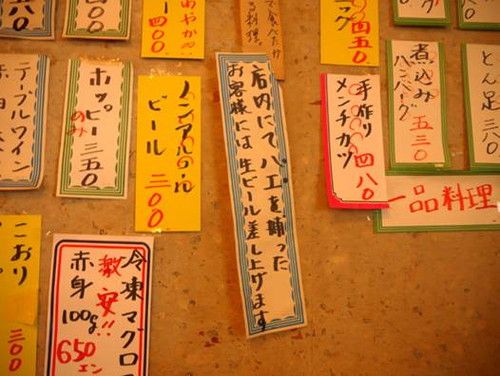 三〇〇
めやかっ
四〇〇
る料理
四五〇
煮込み
ハンバーグ
五三〇
とん足
三〇
手作り
メンチカツ
四八〇
一品料理
店内にてハエを捕った
お客様には生ビール差し上げます
ノンアルコール
ビール
三〇〇
ホッピー
のみ
三五〇
テーブルワイン
赤・白
こおり
三〇〇
冷凍マグロ
激安!!
赤身
100g
650
エン